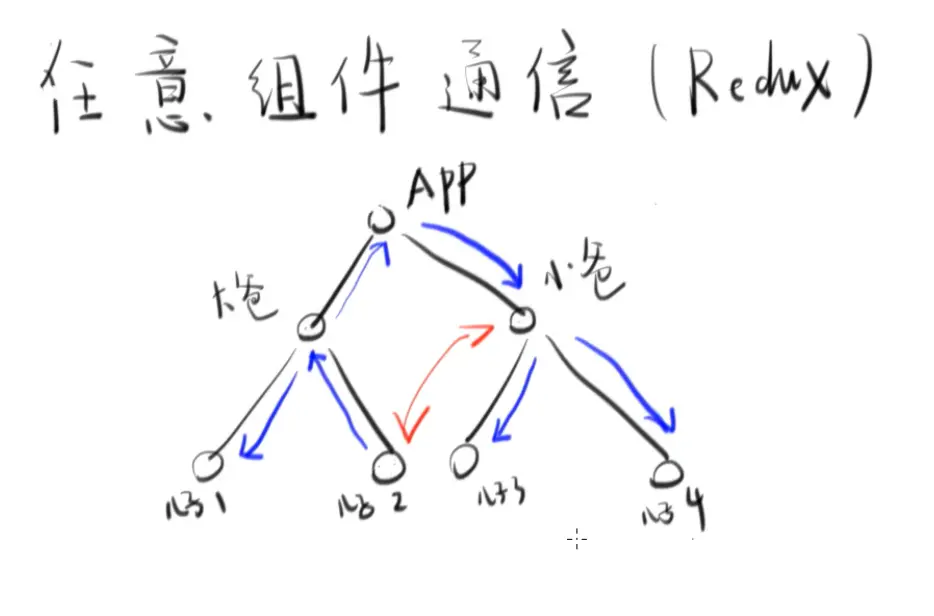 任意组件通信(Redux)
APP
大爸
小爸
儿子1
儿子2
儿子3
儿子4